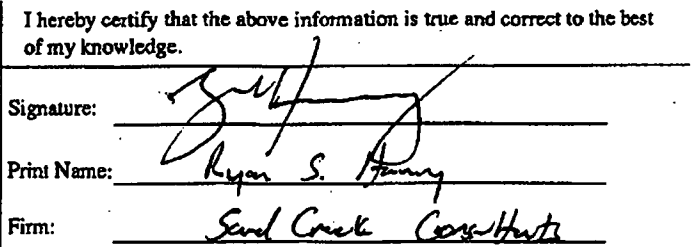 I hereby certify that the above information is true and correct to the best
of my knowledge.
Signature:
Print Name: Ryan S.
Firm: Sand Creek Consultants